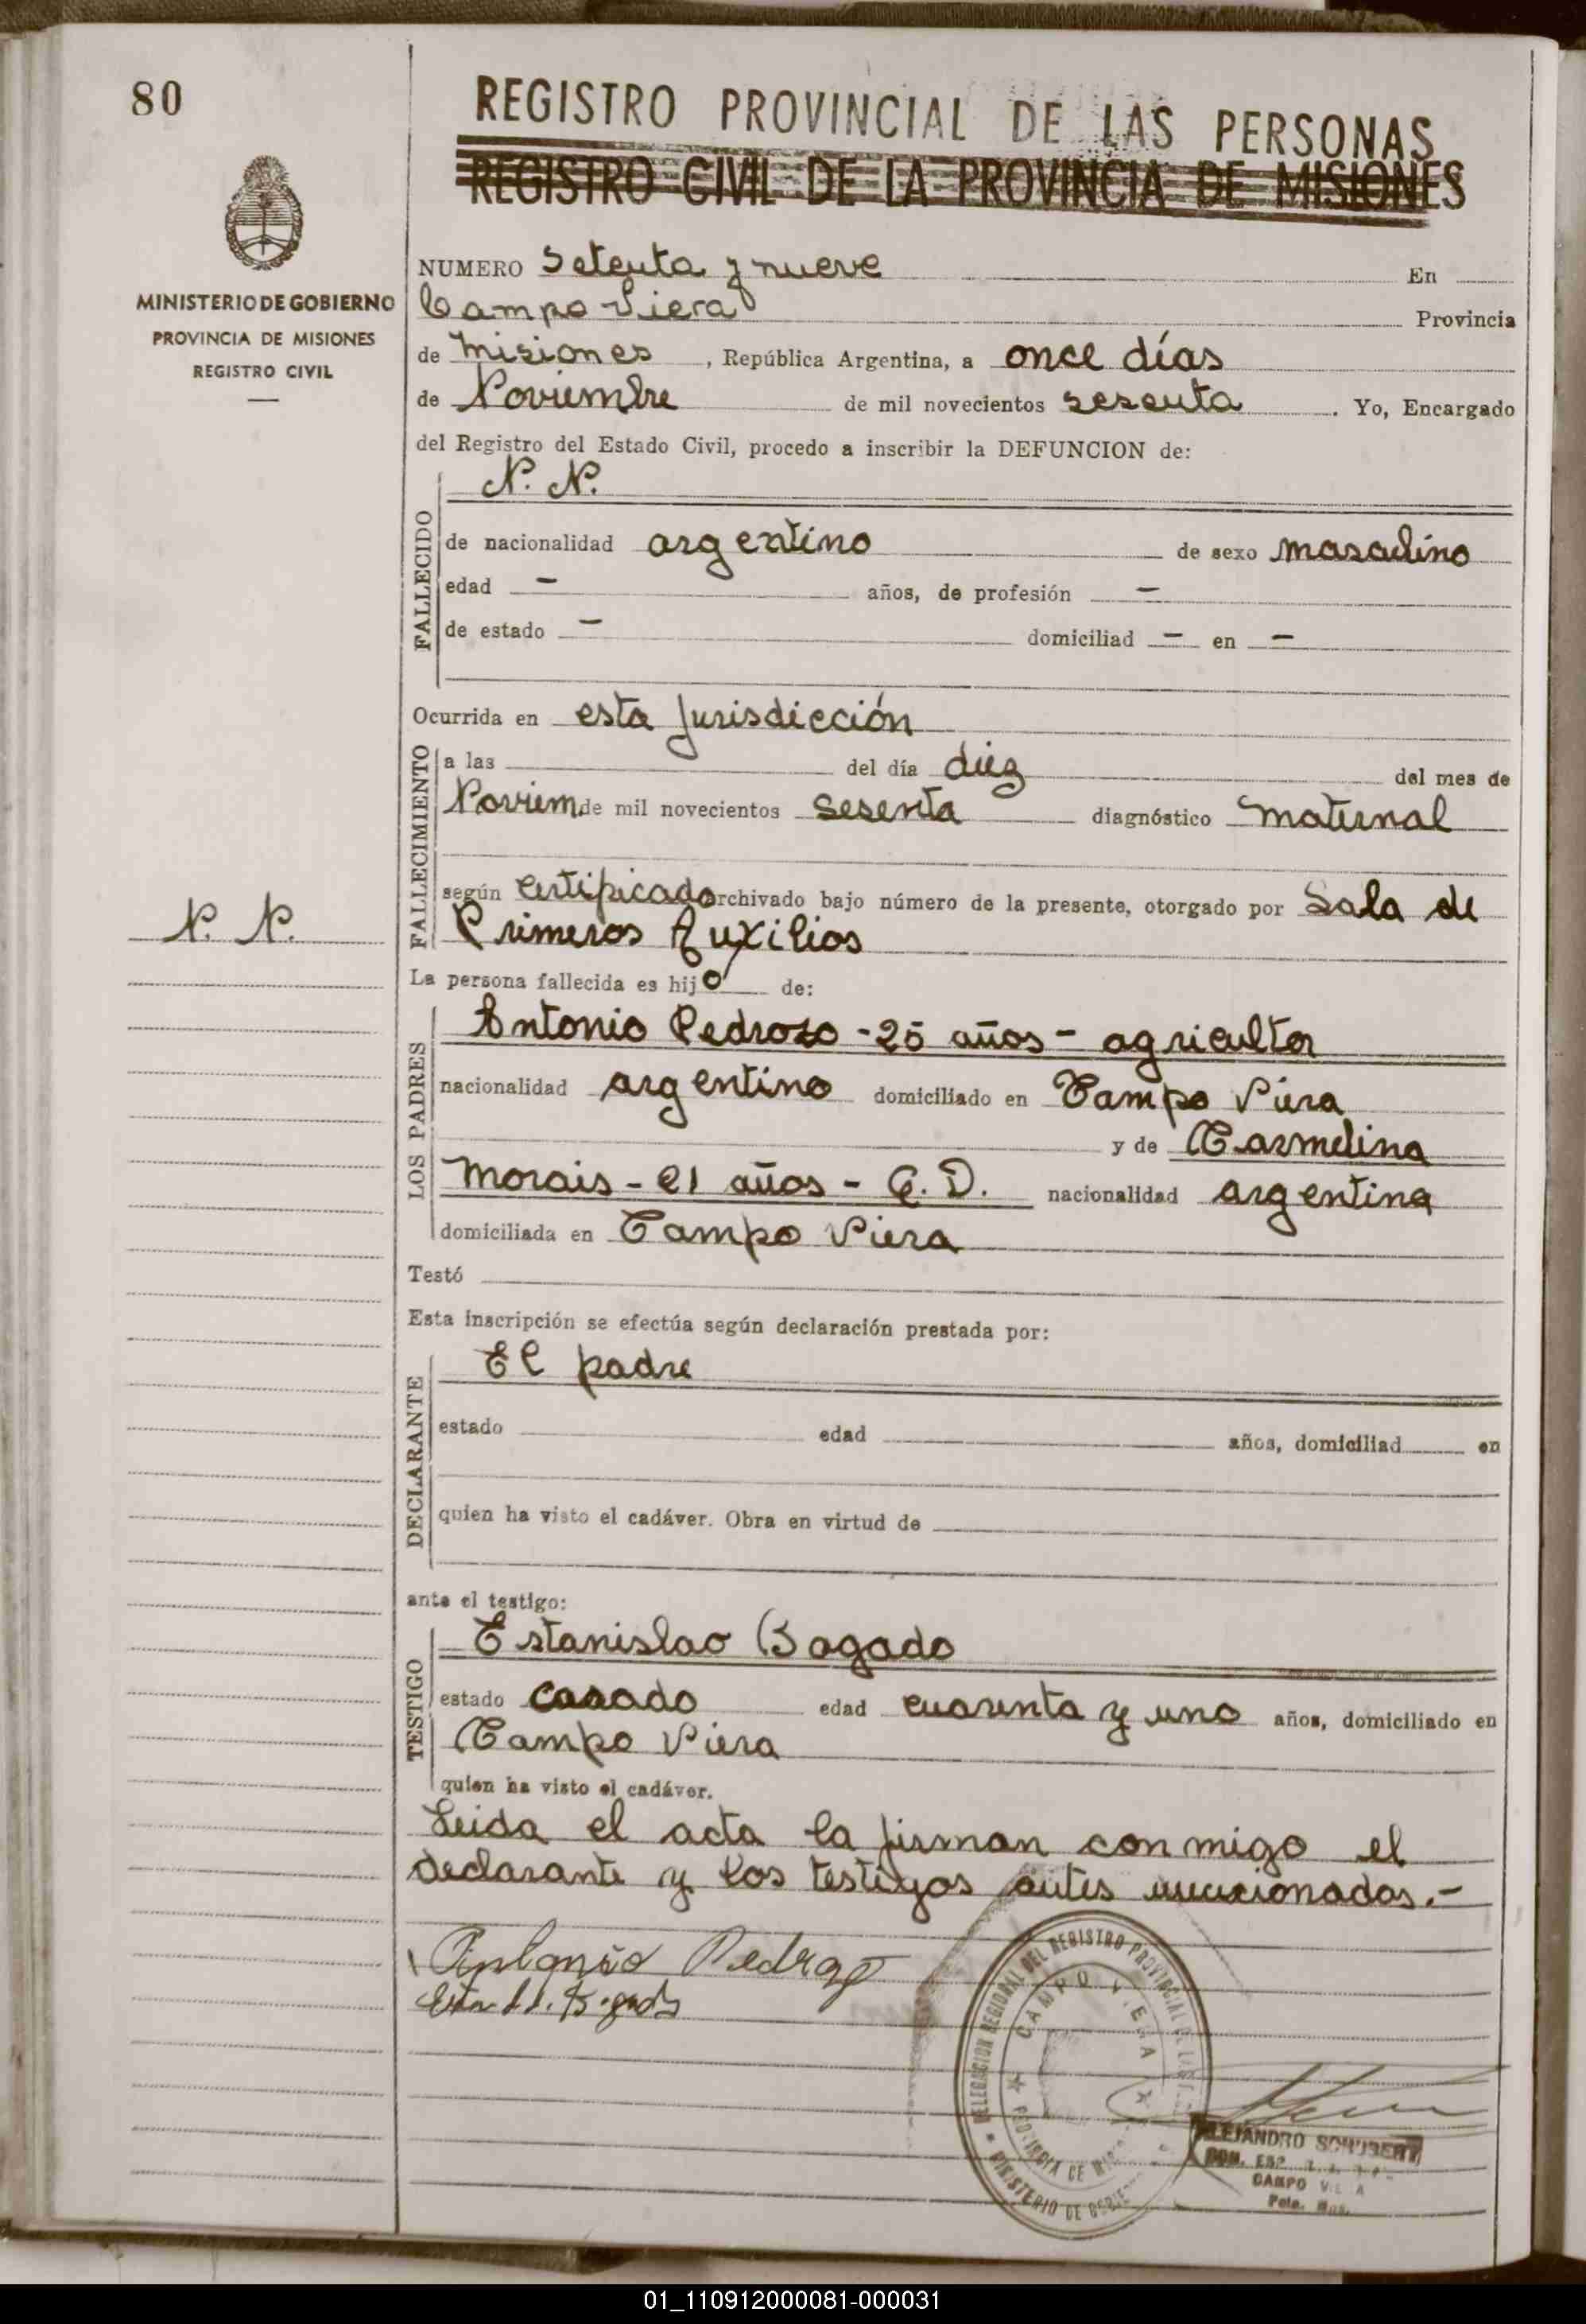 80
REGISTRO PROVINCIAL DE LAS PERSONAS
REGISTRO CIVIL DE LA PROVINCIA DE MISIONES
MINISTERIO DE GOBIERNO
PROVINCIA DE MISIONES
REGISTRO CIVIL
NUMERO Setenta y nueve En
Campo Viera Provincia
de Misiones, República Argentina, a once días
de Noviembre de mil novecientos sesenta. Yo, Encargado
del Registro del Estado Civil, procedo a inscribir la DEFUNCION de:
N. N.
FALLECIDO
de nacionalidad argentino de sexo masculino
edad - años, de profesión -
de estado - domiciliad - en -
Ocurrida en esta Jurisdicción
FALLECIMIENTO
a las del día diez del mes de
Noviem de mil novecientos sesenta diagnóstico maternal
según Certificado archivado bajo número de la presente, otorgado por Sala de
Primeros Auxilios
N. N.
La persona fallecida es hijo de:
LOS PADRES
Antonio Pedrozo - 25 años - agricultor
nacionalidad argentino domiciliado en Campo Viera
y de Carmelina
Morais - 21 años - Q. D. nacionalidad argentina
domiciliada en Campo Viera
Testó
Esta inscripción se efectúa según declaración prestada por:
DECLARANTE
El padre
estado edad años, domiciliad en
quien ha visto el cadáver. Obra en virtud de
ante el testigo:
TESTIGO
Estanislao Bogado
estado casado edad cuarenta y uno años, domiciliado en
Campo Viera
quien ha visto el cadáver.
Leida el acta la firman conmigo el
declarante y los testigos antes mencionados.-
Antonio Pedrozo
DELEGACION REGIONAL DEL REGISTRO PROVINCIAL DE LAS
CAMPO VIERA
PROVINCIA DE
MINISTERIO DE
ALEJANDRO SCHUBERT
CAMPO
01_110912000081-000031